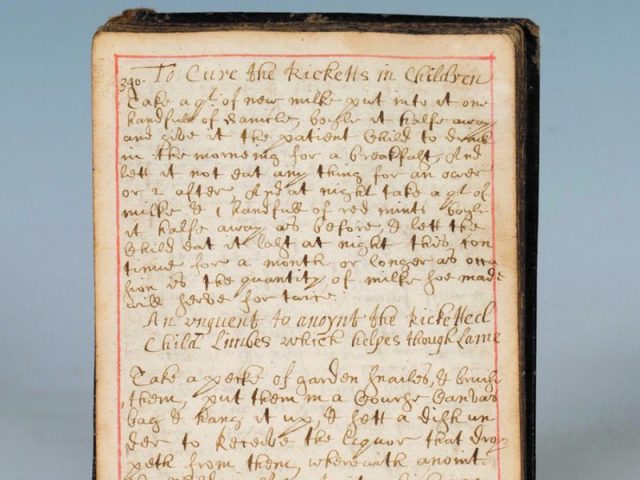 340. To Cure the Ricketts in Children
Take a qt of new milke put into it one
handfull of Sanicle, boyle it halfe away
and give it the patient Child to drink
in the morneing for a breakfast, And
lett it not eat any thing for an ower
or 2 after And at night take a qt of
milke & 1 handfull of red mints boyle
it halfe away as before, & lett the
Child eat it last at night this con
tinue for a month or longer as occa
sion is the quantity of milke soe made
will serve for twice:
An unguent to anoynt the Ricketted
Child Limbes which helpes though Lame
Take a pecke of garden snailes, & bruise
them, put them in a Course Canvas
bag & hang it up, & sett a dish un
der to Receive the liquor that drop
peth from them, wherewith anoint